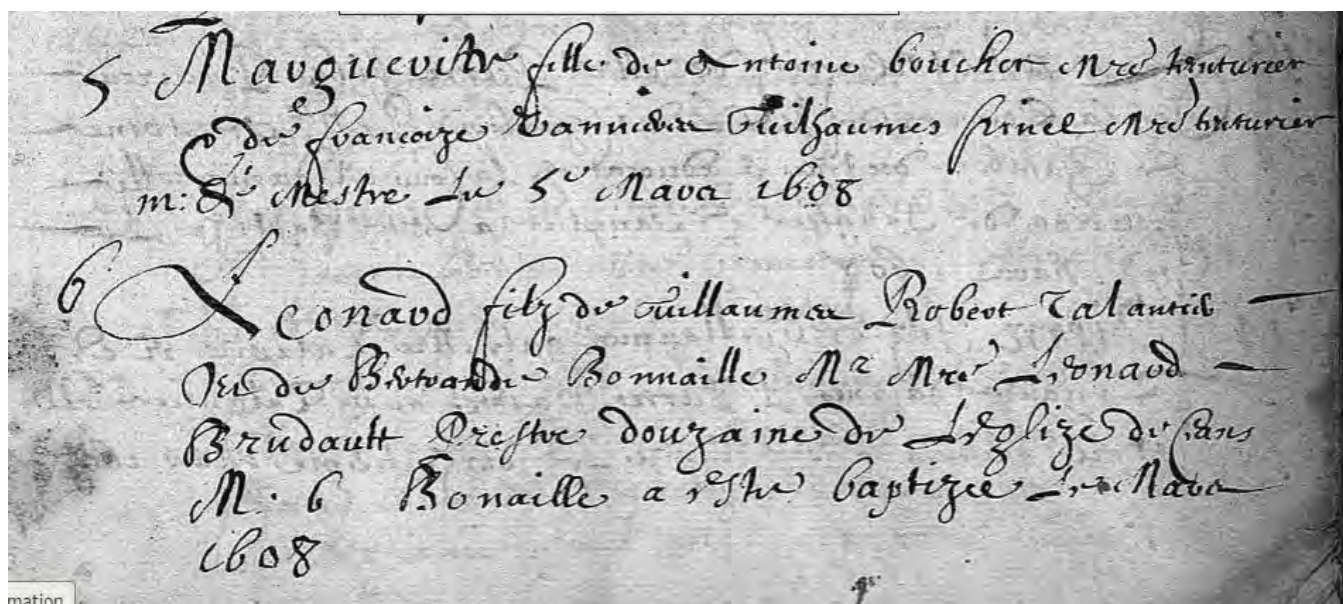 5 Margueritte fille de Antoine boucher Mre tinturier
& de francoize Guilhaumes Mre tinturier
m: Mestre Le 5e Mars 1608
6 Leonard filz de Guillaumes Robert
de Bertrande Bonnaille Mr Mre Leonard
Brudault Prestre douzaine de Leglize de ceans
M. 6 Bonaille a este baptizee Le Mars
1608
mation